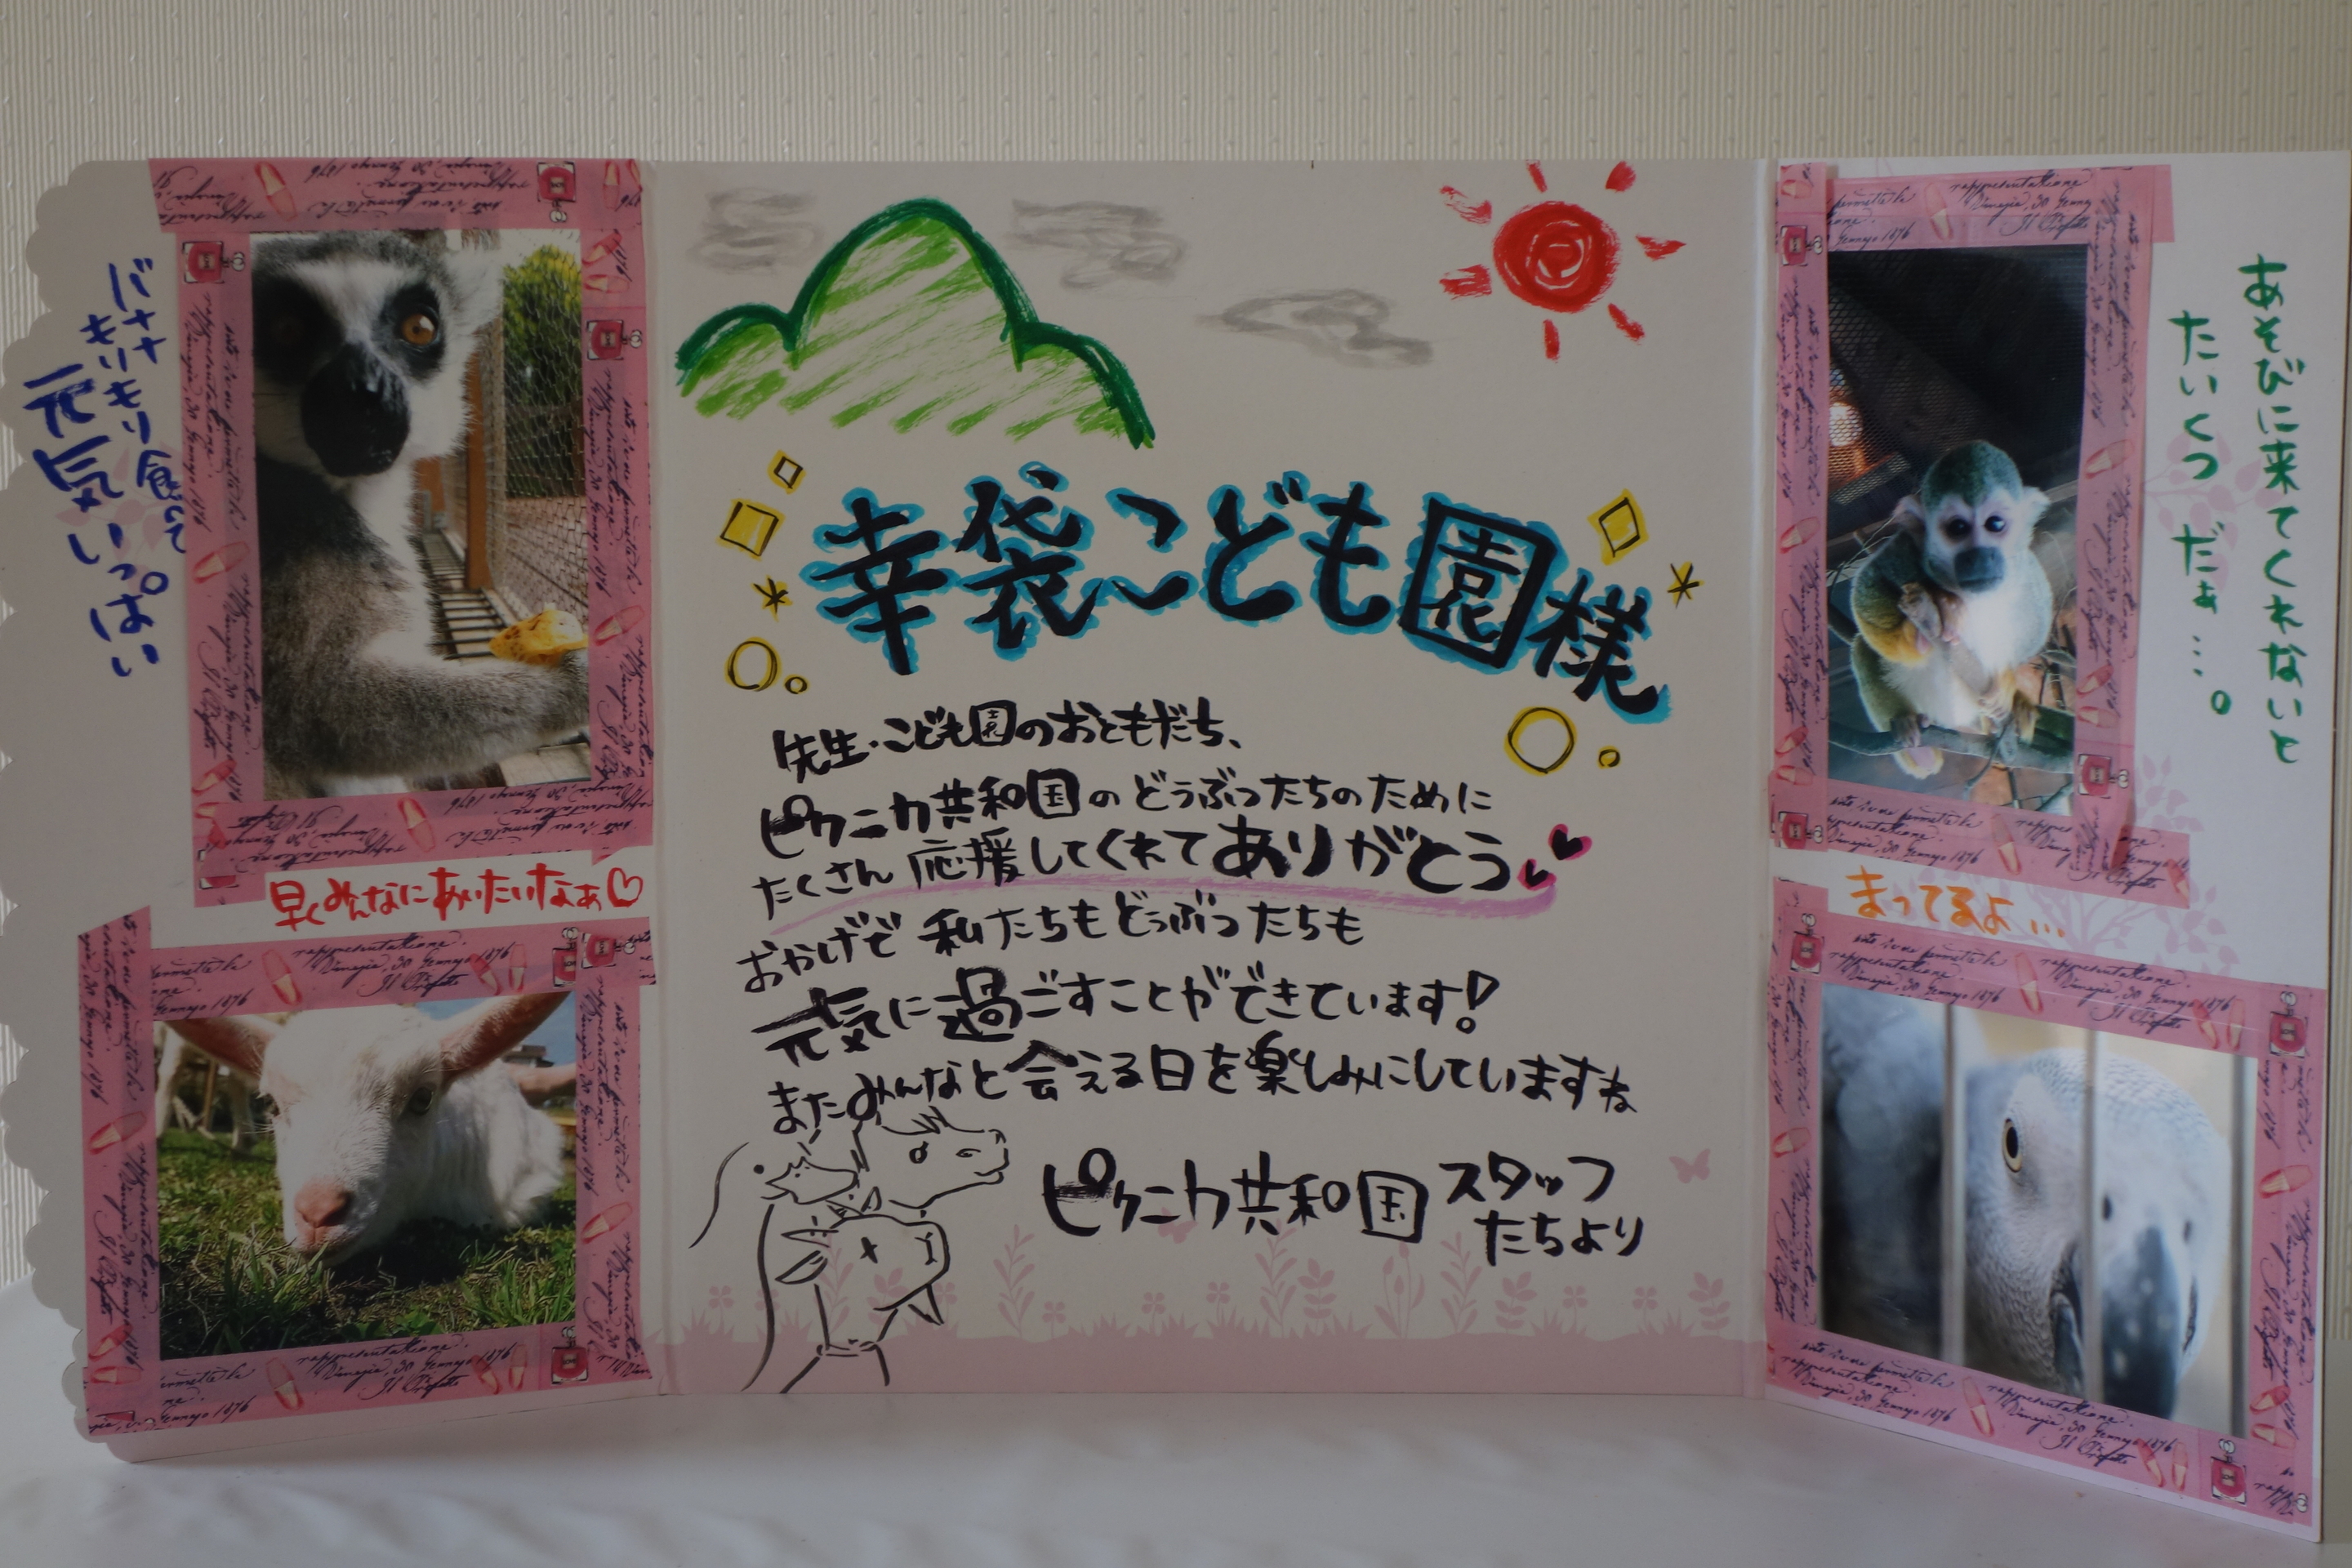 バナナ
もりもり食べて
元気いっぱい
早くみんなにあいたいなぁ♡
幸袋こども園様
先生・こども園のおともだち、
ピクニカ共和国のどうぶつたちのために
たくさん応援してくれてありがとう
おかげで私たちもどうぶつたちも
元気に過ごすことができています!
またみんなと会える日を楽しみにしていますね
ピクニカ共和国スタッフ
たちより
あそびに来てくれないと
たいくつだぁ…。
まってるよ…